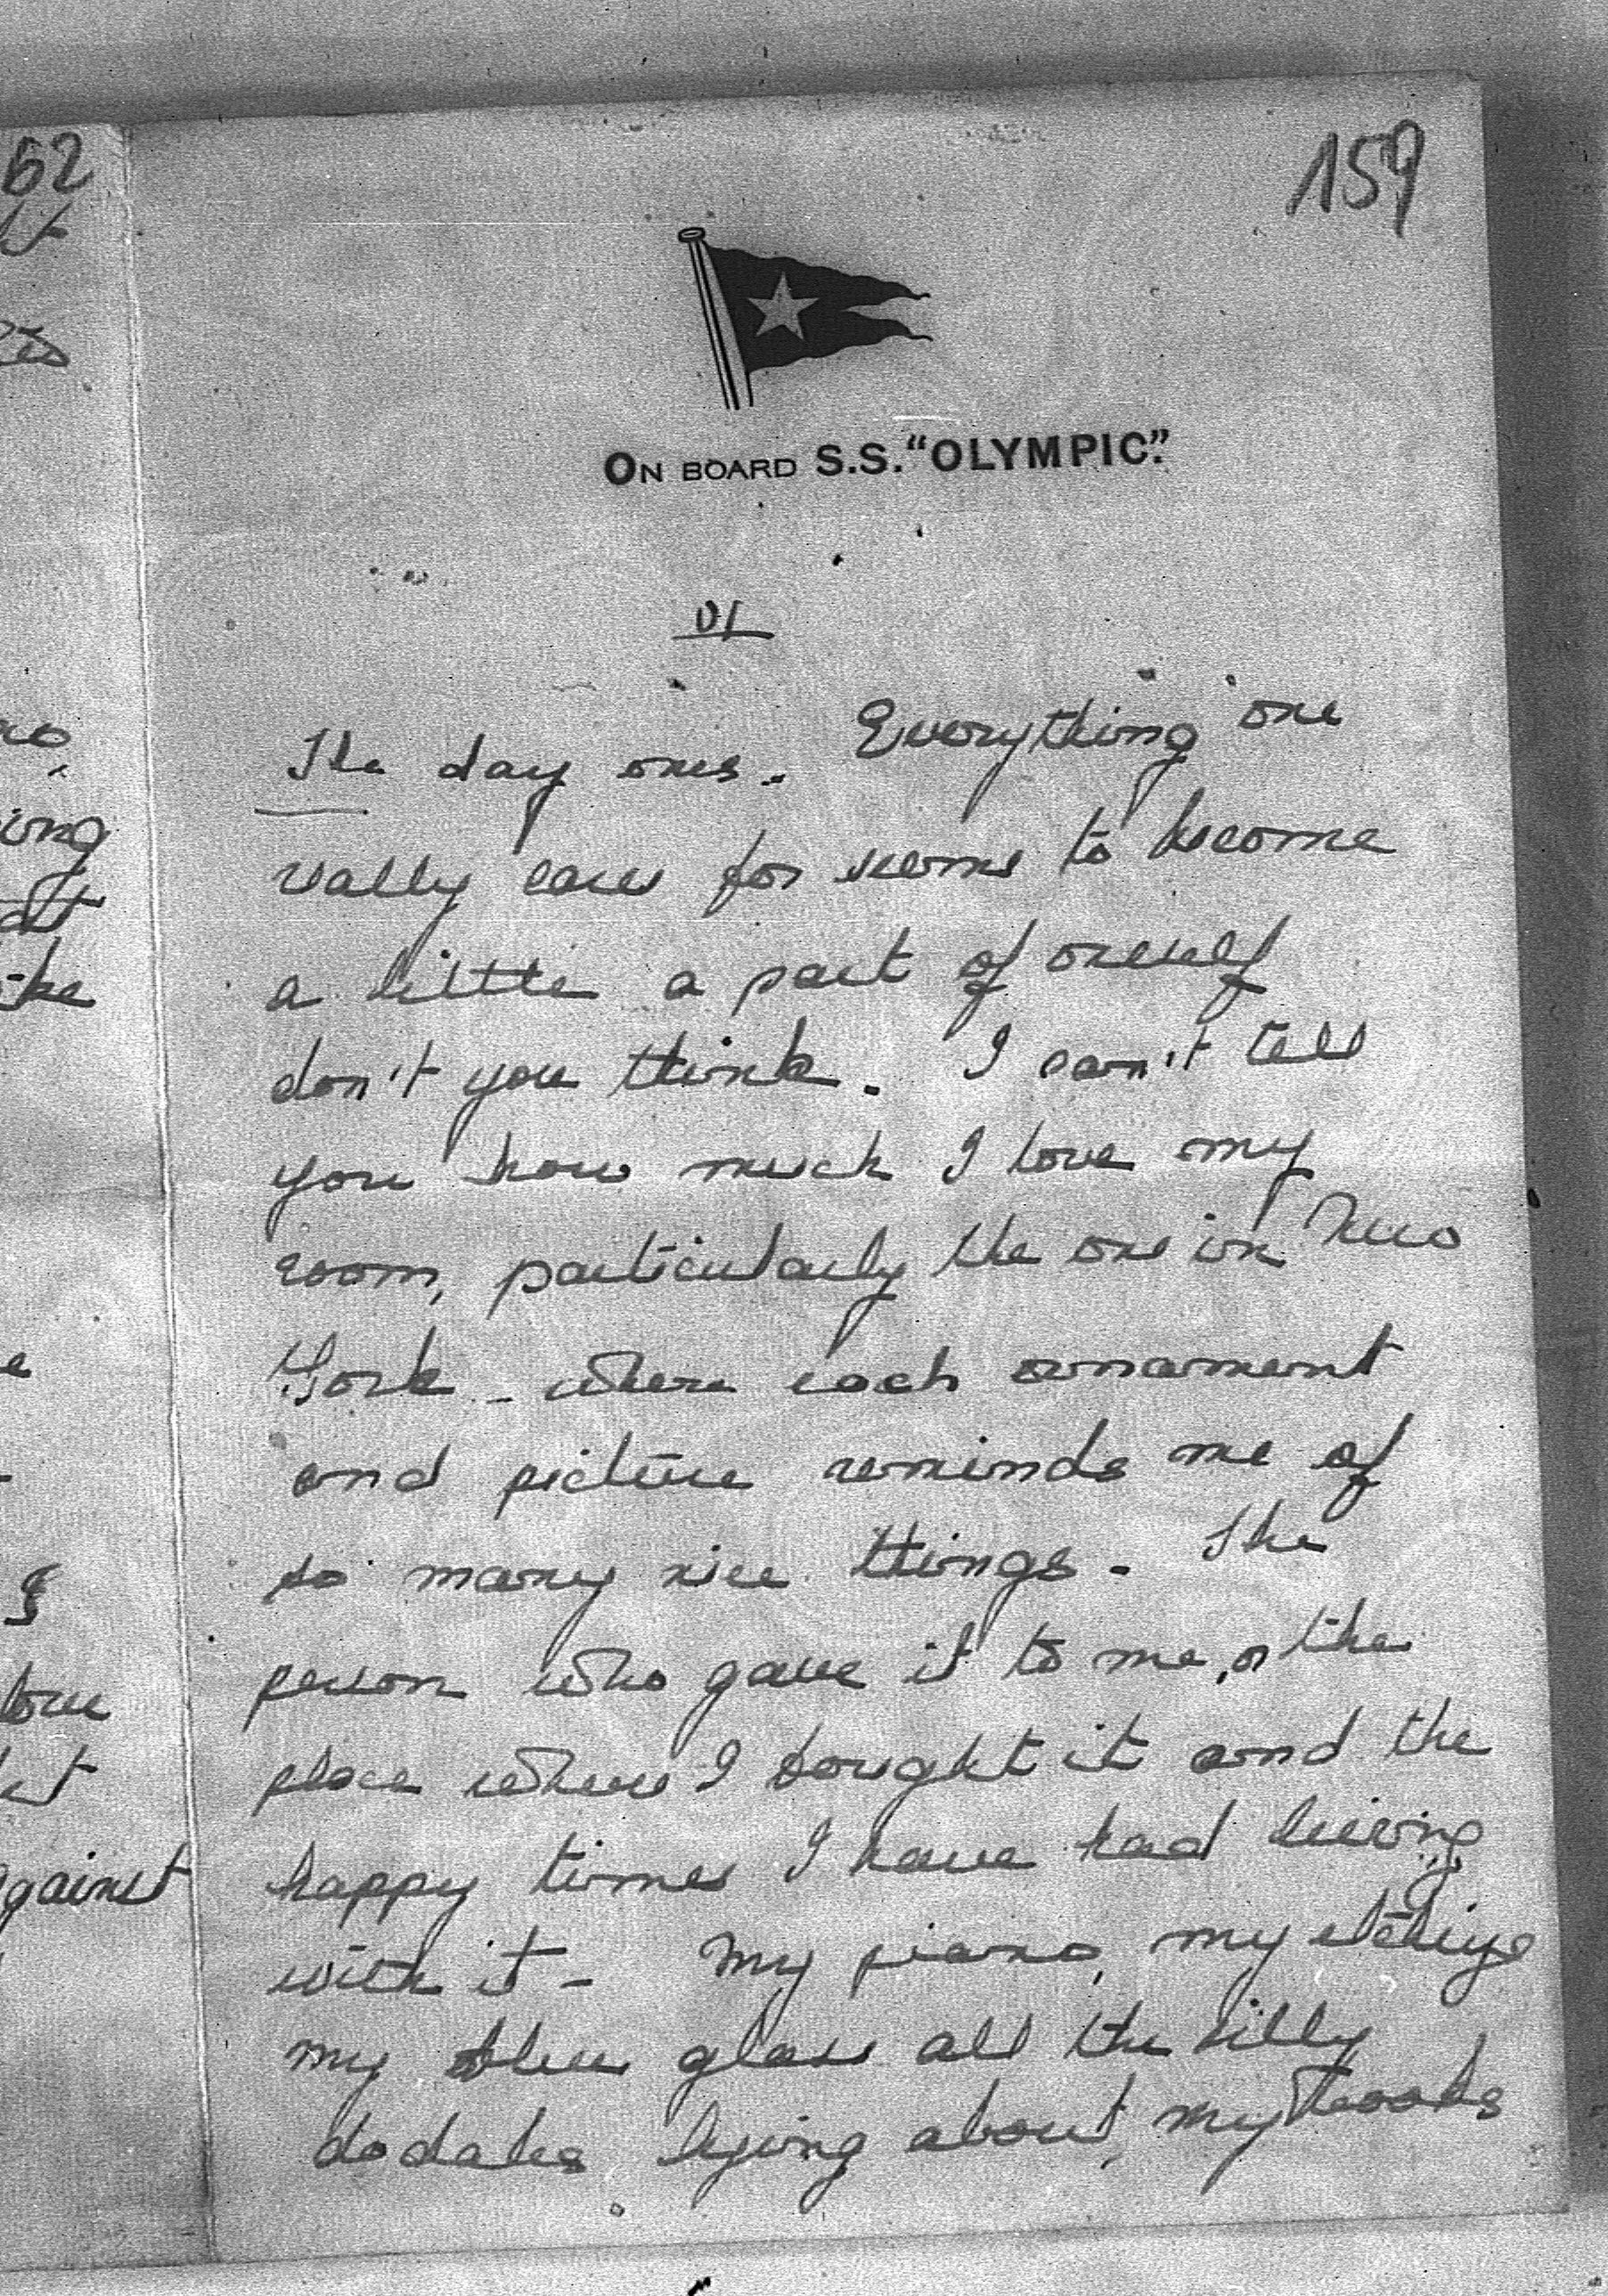 62
159
ON BOARD S.S. "OLYMPIC."
VI
The day ones. Everything one
really cares for seems to become
a little a part of oneself
don't you think. I can't tell
you how much I love my
room, particularly the one in New
York - where each ornament
and picture reminds me of
so many nice things. The
person who gave it to me, or the
place where I bought it and the
happy times I have had living
with it - My piano, my etchings
my blue glass all the silly
dodahs lying about, my books
ing
at
I
love
et
against